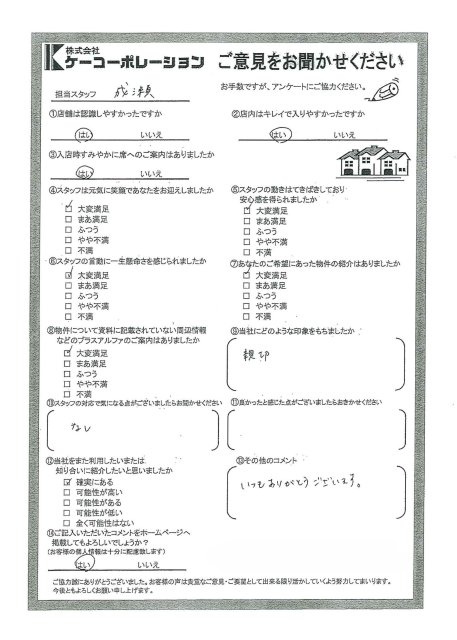 株式会社
ケーコーポレーション
ご意見をお聞かせください
お手数ですが、アンケートにご協力ください。
担当スタッフ 成瀬
①店舗は認識しやすかったですか
はい いいえ
②店内はキレイで入りやすかったですか
はい いいえ
③入店時すみやかに席へのご案内はありましたか
はい いいえ
④スタッフは元気に笑顔であなたをお迎えしましたか
☑ 大変満足
□ まあ満足
□ ふつう
□ やや不満
□ 不満
⑤スタッフの動きはてきぱきしており
安心感を得られましたか
☑ 大変満足
□ まあ満足
□ ふつう
□ やや不満
□ 不満
⑥スタッフの言動に一生懸命さを感じられましたか
☑ 大変満足
□ まあ満足
□ ふつう
□ やや不満
□ 不満
⑦あなたのご希望にあった物件の紹介はありましたか
☑ 大変満足
□ まあ満足
□ ふつう
□ やや不満
□ 不満
⑧物件について資料に記載されていない周辺情報
などのプラスアルファのご案内はありましたか
☑ 大変満足
□ まあ満足
□ ふつう
□ やや不満
□ 不満
⑨当社にどのような印象をもちましたか
親切
⑩スタッフの対応で気になる点がございましたらお聞かせください
なし
⑪良かったと感じた点がございましたらおきかせください
⑫当社をまた利用したいまたは
知り合いに紹介したいと思いましたか
☑ 確実にある
□ 可能性が高い
□ 可能性がある
□ 可能性が低い
□ 全く可能性はない
⑬その他のコメント
いつもありがとうございます。
⑭ご記入いただいたコメントをホームページへ
掲載してもよろしいでしょうか？
(お客様の個人情報は十分に配慮致します)
はい いいえ
ご協力誠にありがとうございました。お客様の声は貴重なご意見・ご要望として出来る限り活かしていくよう努力してまいります。
今後ともよろしくお願い申し上げます。